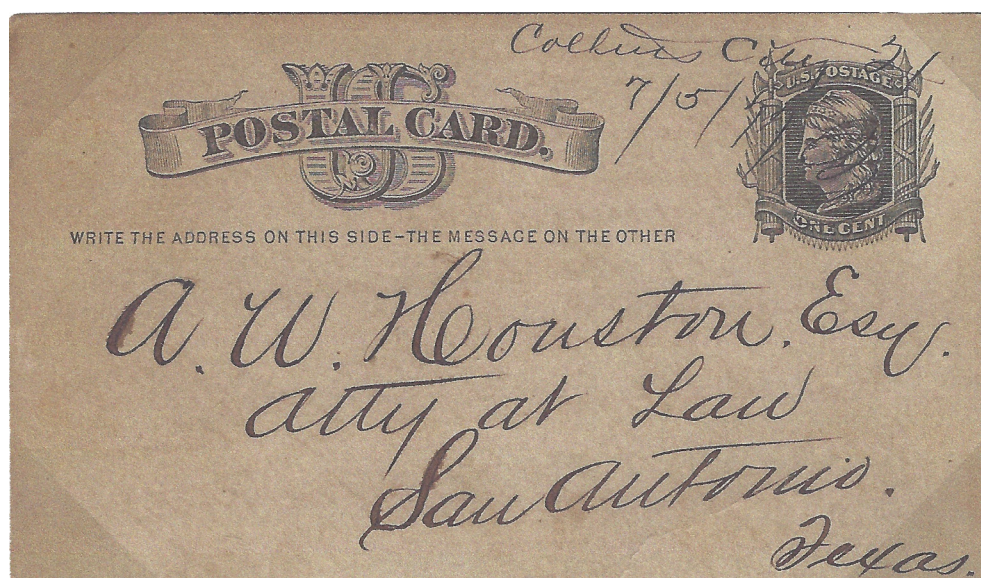 Collins City
7/5/
U.S. POSTAGE
POSTAL CARD.
ONE CENT
WRITE THE ADDRESS ON THIS SIDE–THE MESSAGE ON THE OTHER
A. W. Houston, Esq.
Atty at Law
San Antonio.
Texas.